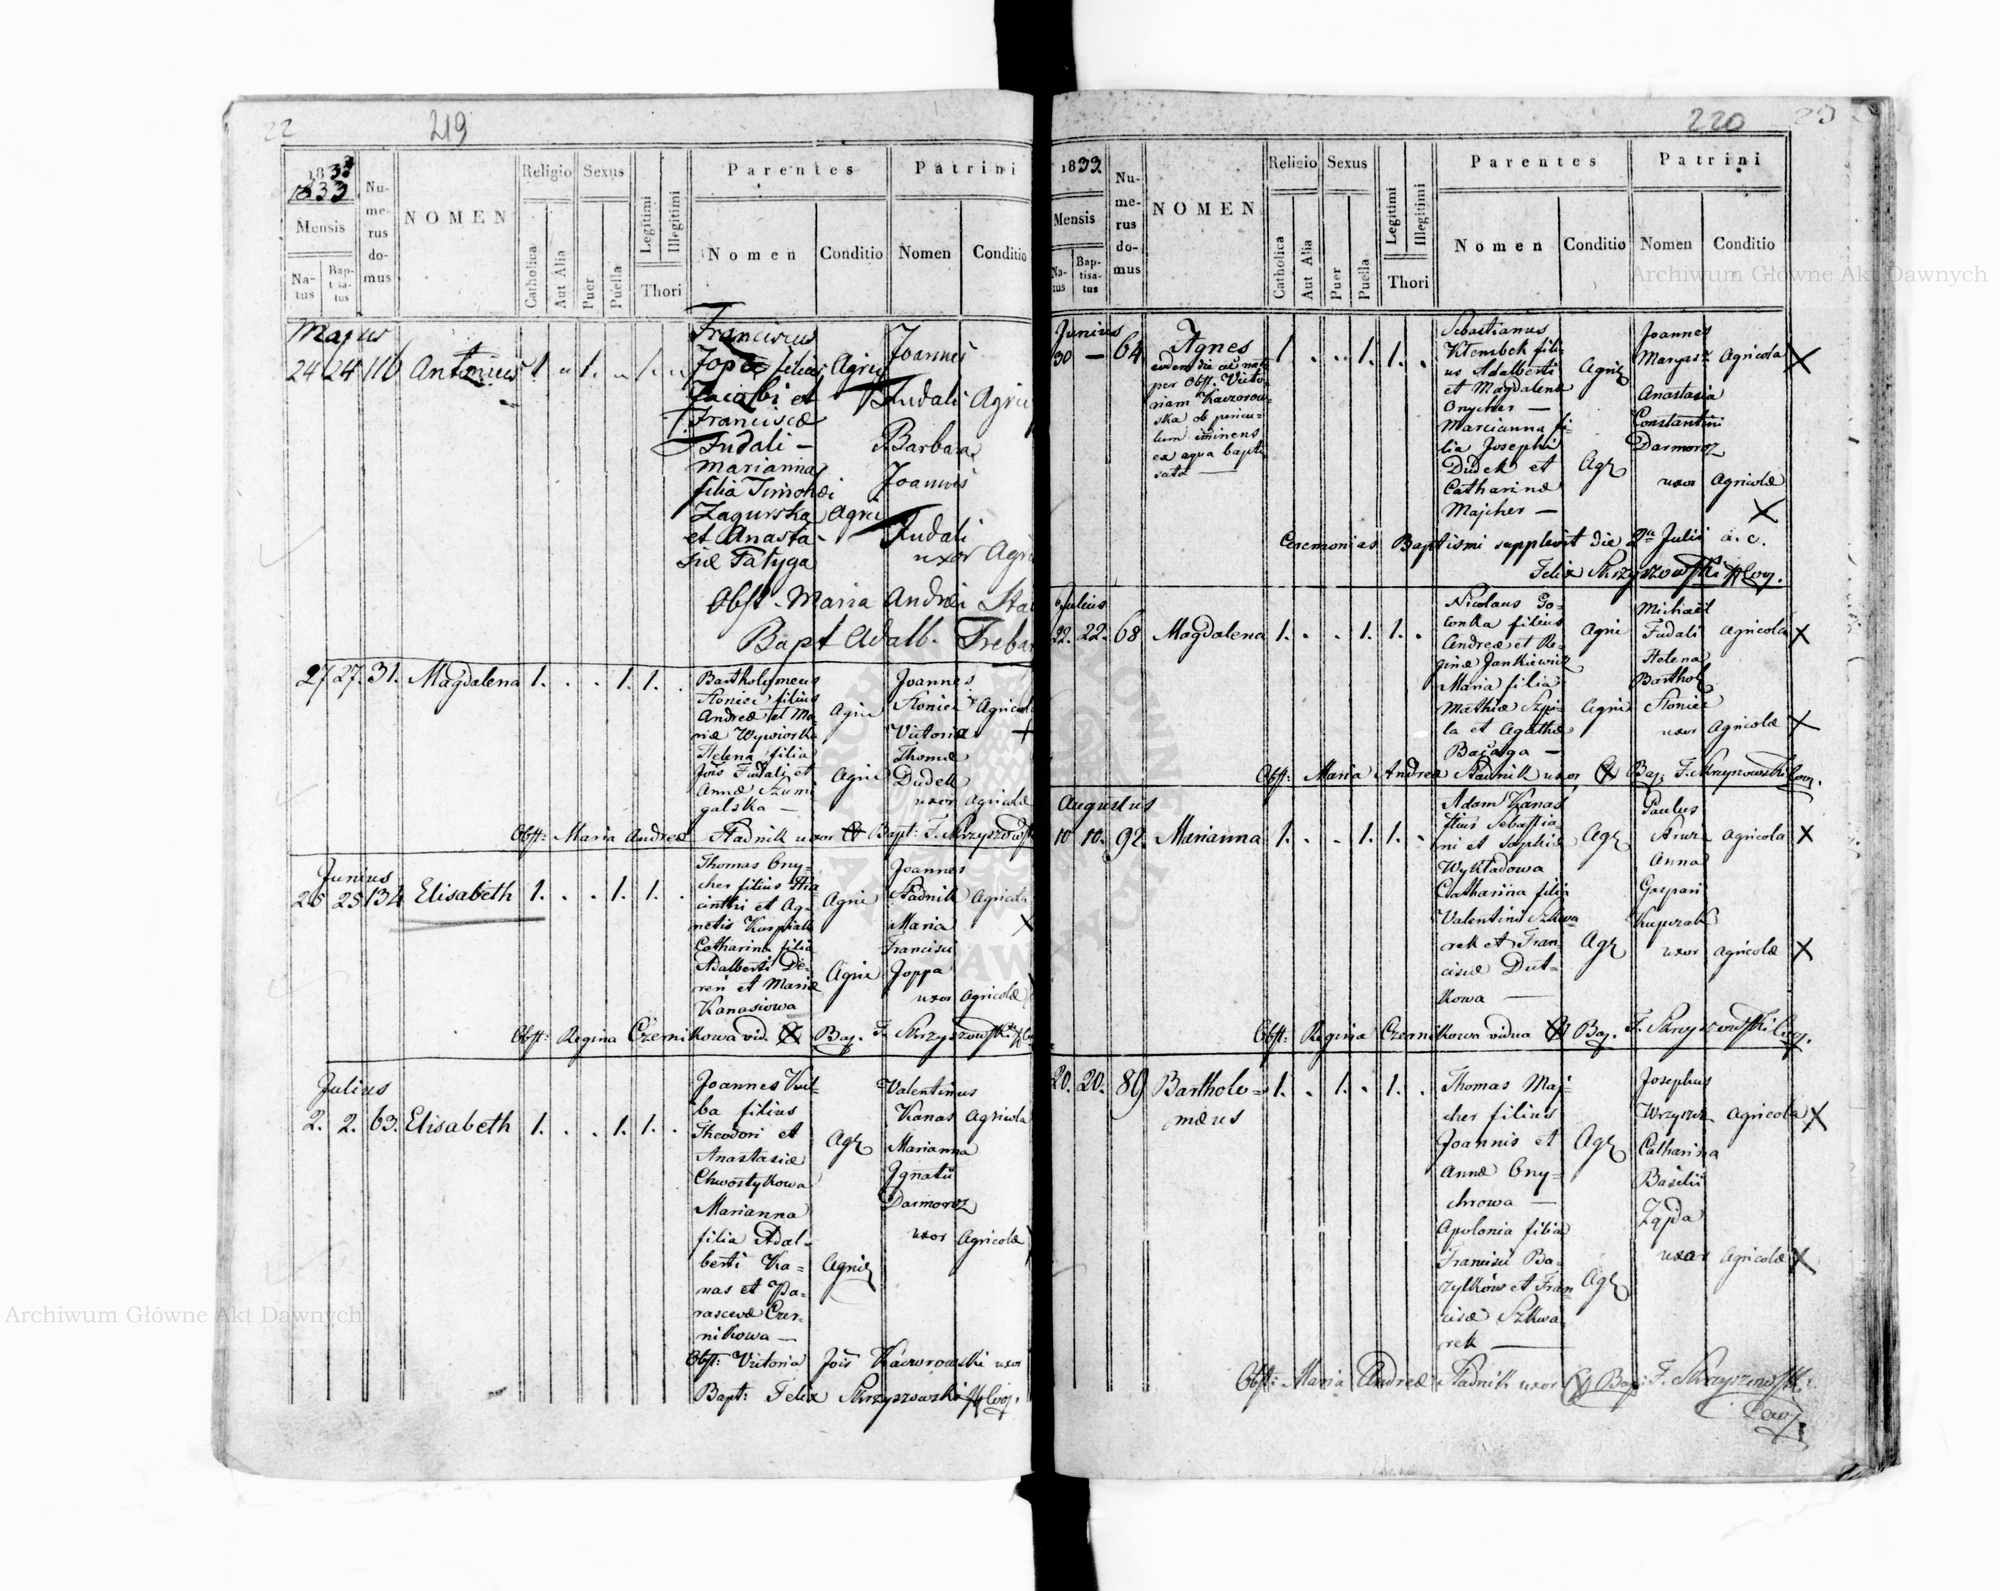 22 219
1833
1833
Mensis
Na-
tus
Bap-
tisa-
tus
Nu-
me-
rus
do-
mus
NOMEN
Religio
Catholica
Aut Alia
Sexus
Puer
Puella
Legitimi
Illegitimi
Thori
Parentes
Nomen
Conditio
Patrini
Nomen
Conditio
Majus
24 24 116 Antonius 1. 1. 1.
Franciscus
Jopa filius Agric
Jacobi et
Franciscæ
Fudali –
Marianna
filia Timothei
Zagurska Agric
et Anasta-
siæ Fatyga
Joannes
Fudali Agric
Barbara
Joannis
Fudali
uxor Agri
Obst. Maria Andreæ Sta
Bapt Adalb. Treba
27 27. 31. Magdalena 1. . . 1. 1. .
Bartholymeus
Słoniec filius
Andreæ et Ma-
riæ
Helena filia
Jois Fudali et
Annæ Szumi
galska —
Agric
Agric
Joannes
Słoniec Agricol
Victoria
Thomæ
Dudek
uxor Agricolæ
Obst: Maria Andreæ Stadnik uxor Bapt: F. Skrzyszowsk
Junius
25 25 134 Elisabeth 1. . . 1. 1. .
Thomas Ony-
cher filius Hia
cinthi et Ag-
netis
Catharina filia
Adalberti De-
ren et Mariæ
Kanasiowa
Agric
Agric
Joannes
Stadnik Agricola
Maria
Francisci
Joppa
uxor Agricolæ
Obst: Regina Czernikowa vid. Bap. F. Skrzyszowski
Julius
2. 2. 63. Elisabeth 1. . . 1. 1. .
Joannes Kul-
ba filius
Theodori et
Anastasiæ
Chwostykowa
Marianna
filia Adal-
berti Ka-
nas et Pa-
rascevæ Czer-
nikowa —
Agr
Agric
Valentinus
Kanas Agricola
Marianna
Ignatii
Darmoroz
uxor Agricolæ
Obst: Victoria Jois Kaczorowski uxor
Bapt: Felix Skrzyszowski Coop.
220
1833.
Mensis
Na-
tus
Bap-
tisa-
tus
Nu-
me-
rus
do-
mus
NOMEN
Religio
Catholica
Aut Alia
Sexus
Puer
Puella
Legitimi
Illegitimi
Thori
Parentes
Nomen
Conditio
Patrini
Nomen
Conditio
Junius
30 — 64 Agnes 1. . . 1. 1. .
eadem die
per Obst. Victo-
riam Kaczorow-
ska ob pericu-
lum iminens
ex aqua bapti
sata —
Sebastianus
Klembek fili-
us Adalberti
et Magdalenæ
Onycher —
Marcianna fi-
lia Josephi
Dudek et
Catharinæ
Majcher —
Agric
Agr
Joannes
Agricola X
Anastasia
Constantini
Darmoroz
uxor Agricolæ
X
Ceremonias Baptismi supplevit die 2da Julii a. c.
Felix Skrzyszowski Coop.
Julius
22. 22. 68 Magdalena 1. . . 1. 1. .
Nicolaus Go-
lonka filius
Andreæ et Re-
ginæ Jankiewicz
Maria filia
Mathiæ Szpi-
la et Agathæ
Agric
Agric
Michael
Fudali Agricola X
Helena
Barthol
Słoniec
uxor Agricolæ X
Obst: Maria Andreæ Stadnik uxor Bap: F. Skrzyszowski Coop.
Augustus
10 10. 92. Marianna 1. . . 1. 1. .
Adam Kanas
filius Sebastia-
ni et Sophiæ
Wykładowa
Catharina filia
Valentini Szkwa
rek et Fran-
ciscæ Dut-
kowa —
Agr
Agr
Paulus
Agricola X
Anna
Gaspari
Kuprak
uxor Agricolæ X
Obst: Regina Czernikowa vidua Bap. F. Skrzyszowski Coop.
20. 20. 89 Bartholo- 1. . 1. . 1. .
mæus
Thomas Maj-
cher filius
Joannis et
Annæ Ony-
chrowa —
Apolonia filia
Francisci Ba-
zylków et Fran
ciscæ Szkwa-
rek —
Agr
Agr
Josephus
Agricola X
Catharina
Basilii
Zajda
uxor Agricolæ X
Obst: Maria Andreæ Stadnik uxor Bap: F. Skrzyszowski
Coop.
Archiwum Główne Akt Dawnych
Archiwum Główne Akt Dawnych